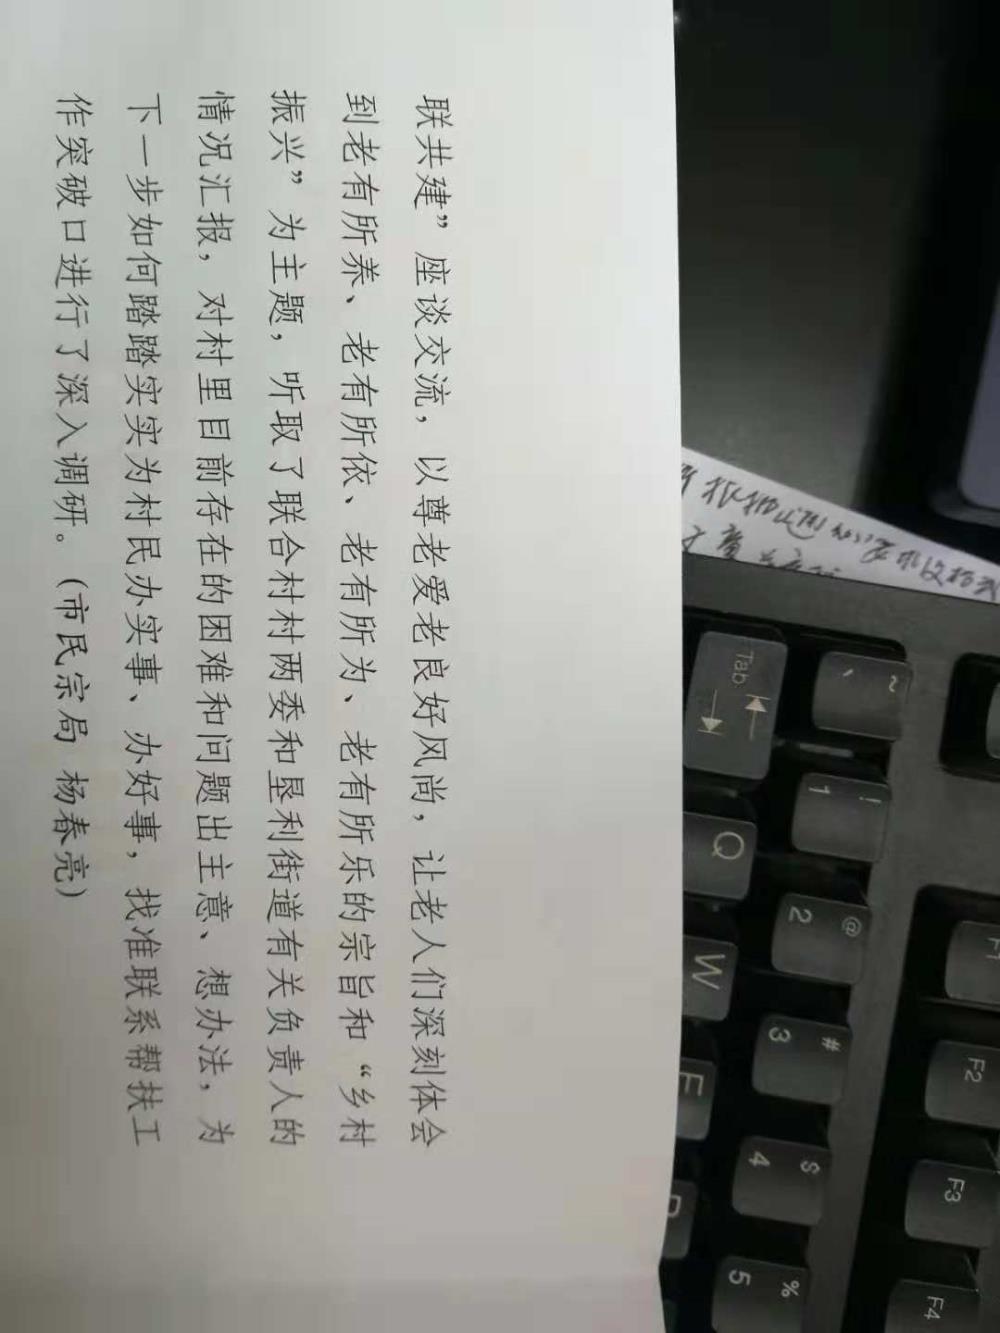 联共建”座谈交流，以尊老爱老良好风尚，让老人们深刻体会
到老有所养、老有所依、老有所为、老有所乐的宗旨和“乡村
振兴”为主题，听取了联合村村两委和垦利街道有关负责人的
情况汇报，对村里目前存在的困难和问题出主意、想办法，为
下一步如何踏踏实实为村民办实事、办好事，找准联系帮扶工
作突破口进行了深入调研。（市民宗局 杨春亮）
~
!
1
@
2
#
3
$
4
%
5
Tab
Q
W
E
R
F1
F2
F3
F4